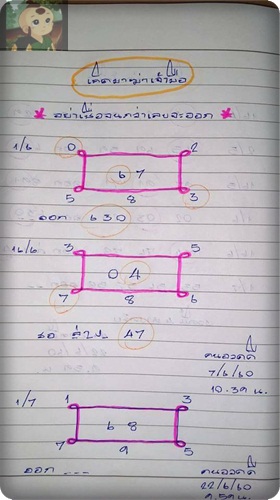 * อย่าเชื่อจนกว่าเลขจะออก *
1/6 0 2
6 7
5 8 3
ออก 630
16/6 3 5
0 4
7 8 6
รอ ล่าง 47
คนอวดดี
7/6/60
10.39 น.
1/7 1 3
6 8
7 9 5
ออก ---
คนอวดดี
22/6/60